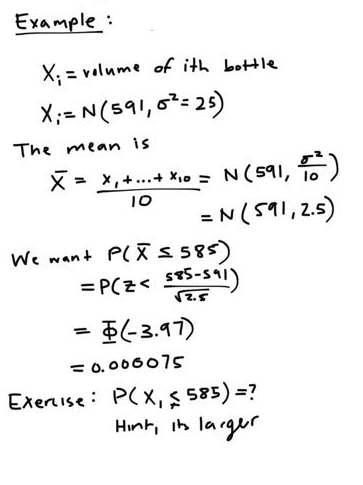 Example :
Xᵢ = volume of ith bottle
Xᵢ = N(591, σ²= 25)
The mean is
X̄ = (X₁ + ... + X₁₀)/10 = N(591, σ²/10)
= N(591, 2.5)
We want P(X̄ ≤ 585)
= P(Z < (585-591)/√2.5)
= Φ(-3.97)
= 0.000075
Exercise : P(X₁ ≤ 585) = ?
Hint, its larger